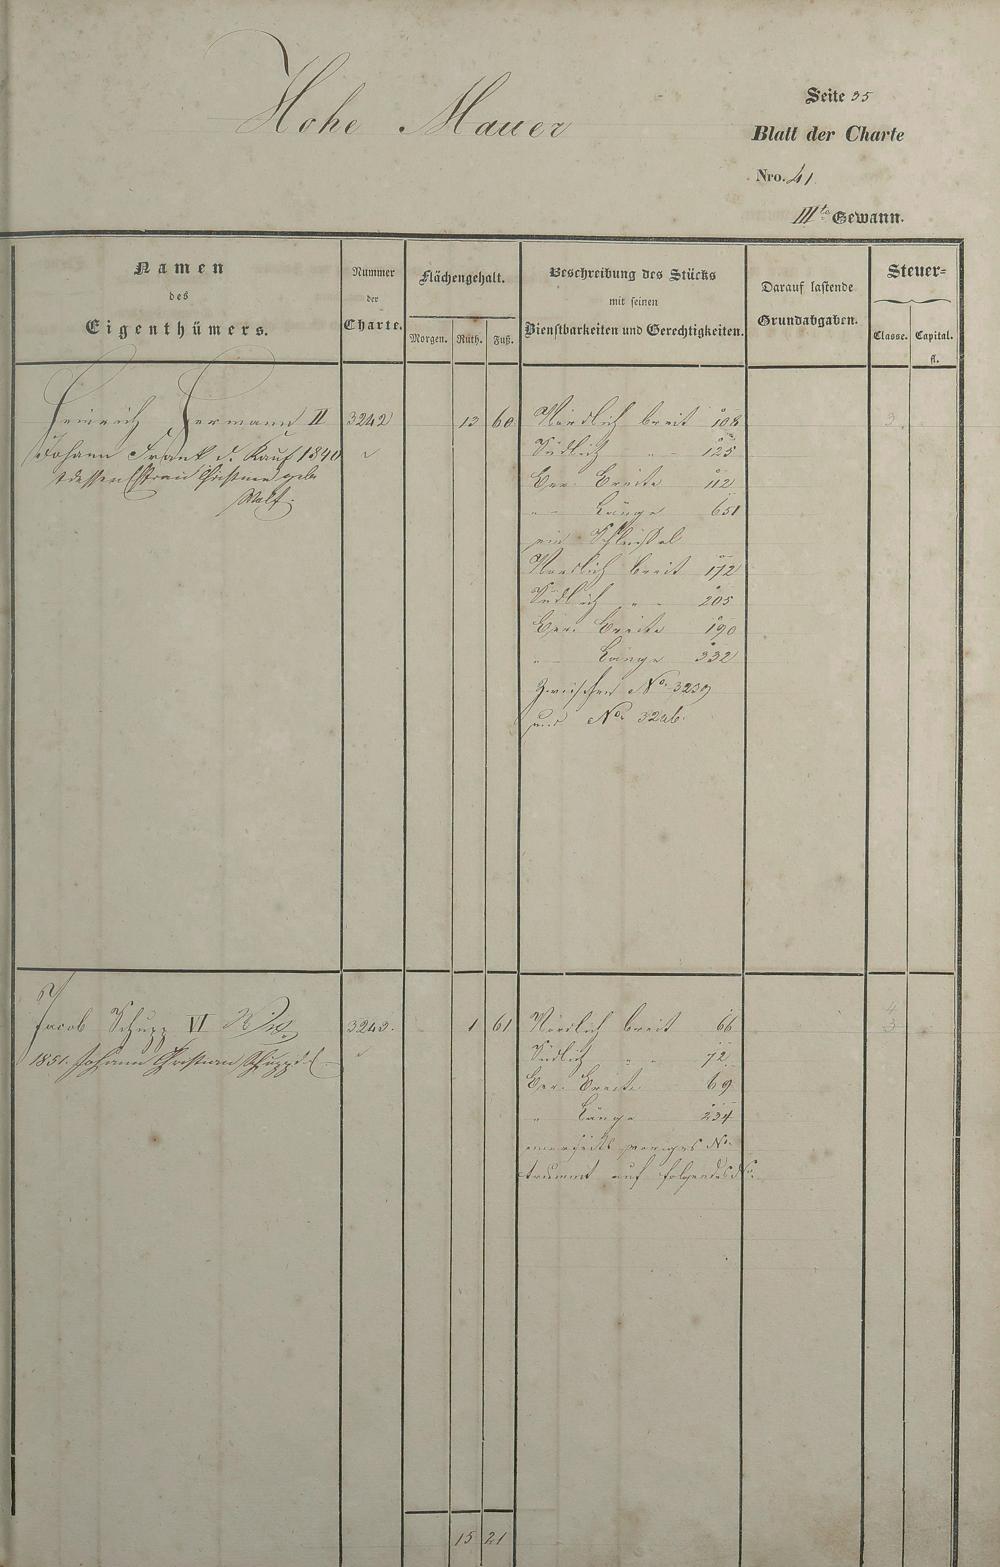 Hohe Mauer
Seite 35
Blatt der Charte
Nro. 41
IIIte Gewann.
Namen
des
Eigenthümers.
Nummer
der
Charte.
Flächengehalt.
Morgen. Ruth. Fuß.
Beschreibung des Stücks
mit seinen
Dienstbarkeiten und Gerechtigkeiten.
Darauf lastende
Grundabgaben.
Steuer=
Classe. Capital.
fl.
Heinrich Hermann II 3242 13 60 Nördlich breit 108 3
Johann Frank d. Kauf 1840 Südlich " " 125
dessen Ehefrau Christine geb. Ger. Breite 112
Wolf " Länge 651
ein Schleissel
Nördlich breit 172
Südlich " " 205
Ger. Breite 190
" Länge 332
Zwischen No. 3239
und No. 3246.
Jacob Schupp VI 3243. 1 61 Nördlich breit 66 4 3
1851. Johann Christian Schupp Südlich " " 72
Ger. Breite 69
" Länge 234
einerseits voriges No.
trummt auf folgendes No.
15 21